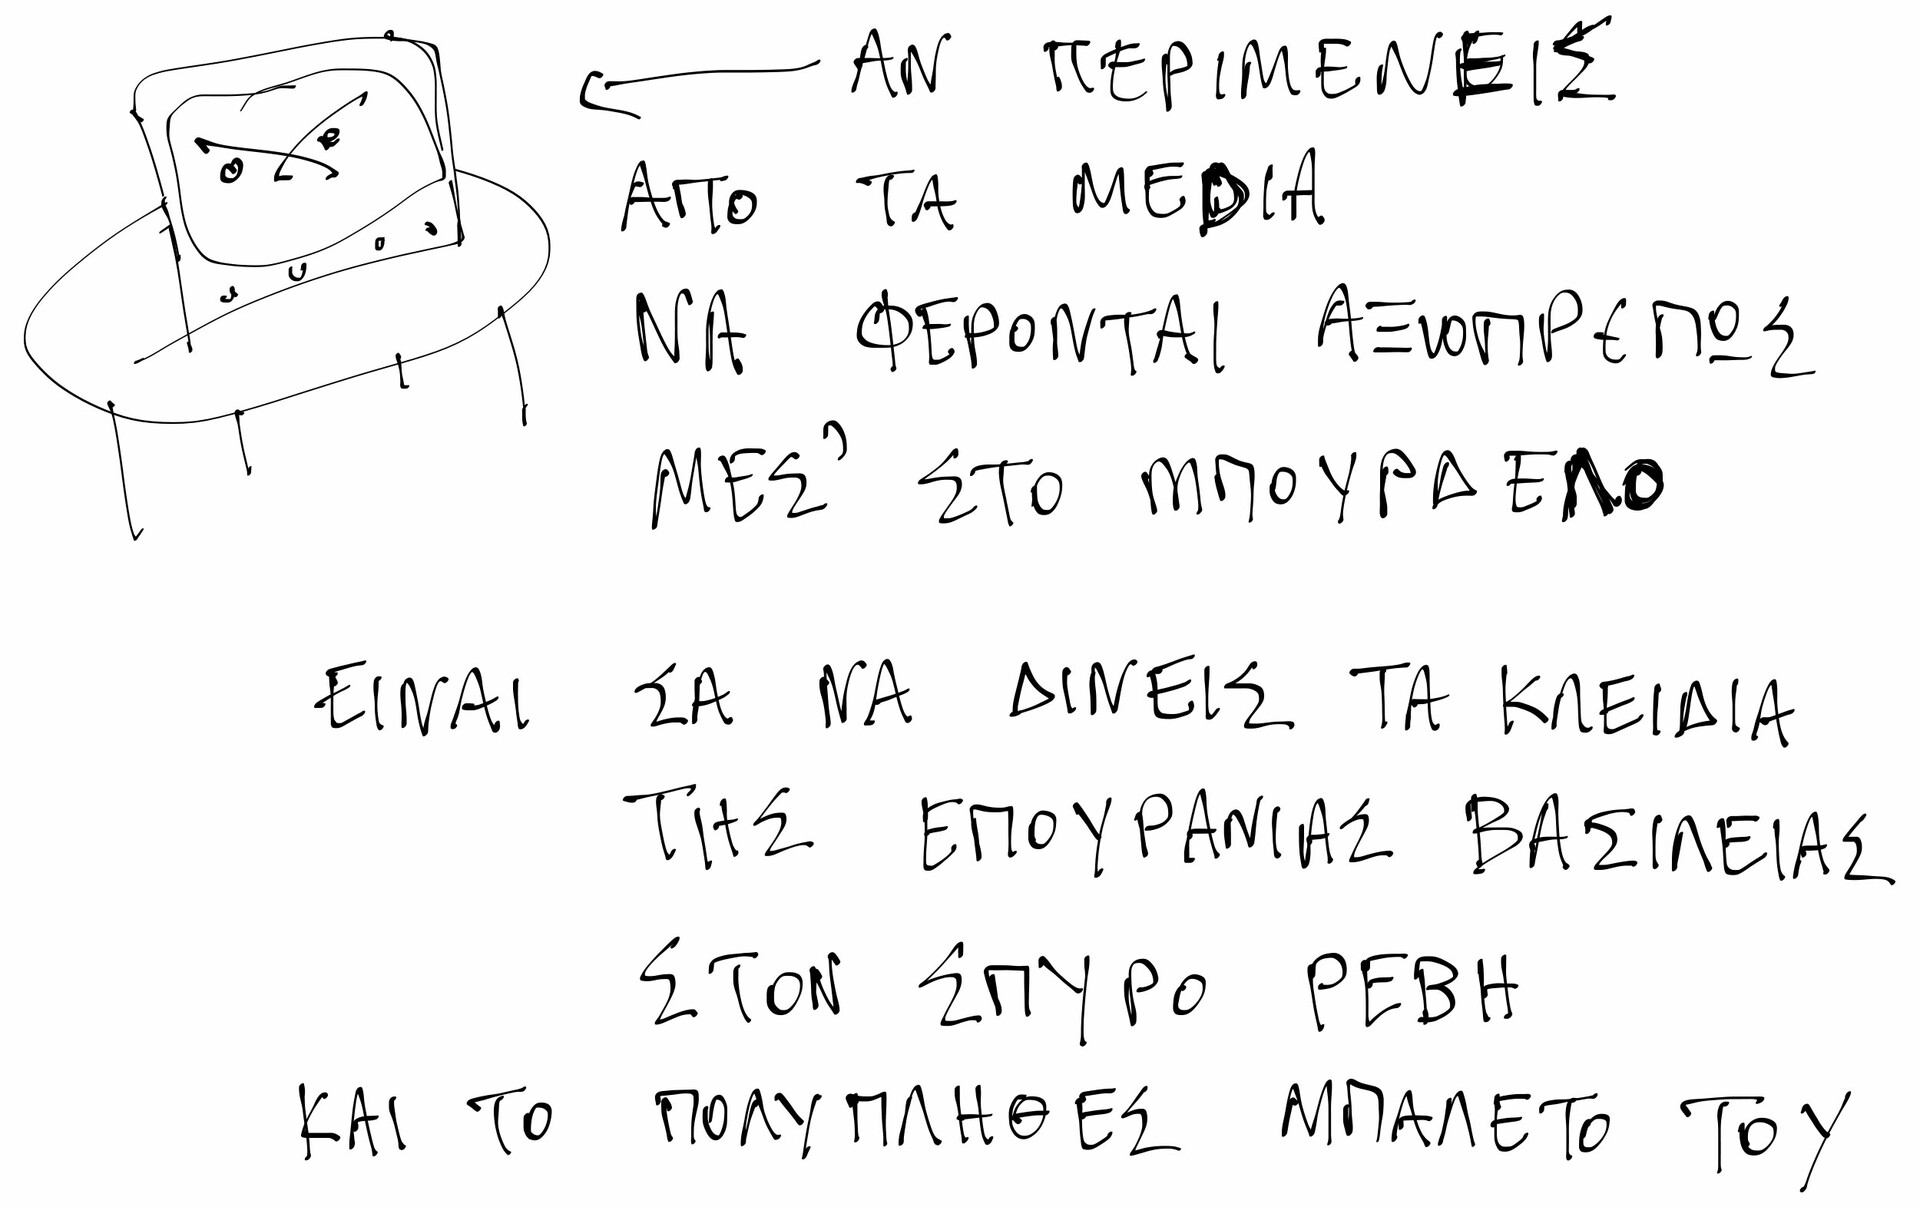 ΑΝ ΠΕΡΙΜΕΝΕΙΣ
ΑΠΟ ΤΑ MEDIA
ΝΑ ΦΕΡΟΝΤΑΙ ΑΞΙΟΠΡΕΠΩΣ
ΜΕΣ' ΣΤΟ ΜΠΟΥΡΔΕΛΟ
ΕΙΝΑΙ ΣΑ ΝΑ ΔΙΝΕΙΣ ΤΑ ΚΛΕΙΔΙΑ
ΤΗΣ ΕΠΟΥΡΑΝΙΑΣ ΒΑΣΙΛΕΙΑΣ
ΣΤΟΝ ΣΠΥΡΟ ΡΕΒΗ
ΚΑΙ ΤΟ ΠΟΛΥΠΛΗΘΕΣ ΜΠΑΛΕΤΟ ΤΟΥ